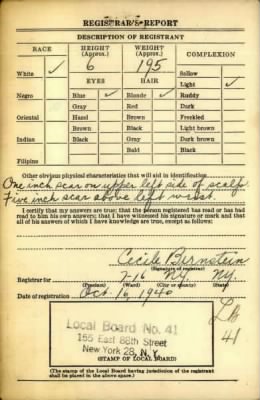 REGISTRAR'S REPORT
DESCRIPTION OF REGISTRANT
RACE HEIGHT (Approx.) WEIGHT (Approx.) COMPLEXION
White ✓ 6 195 Sallow
EYES HAIR Light ✓
Negro Blue ✓ Blonde ✓ Ruddy
Gray Red Dark
Oriental Hazel Brown Freckled
Brown Black Light brown
Indian Black Gray Dark brown
Bald Black
Filipino
Other obvious physical characteristics that will aid in identification
One inch scar on upper left side of scalp.
Five inch scar above left wrist.
I certify that my answers are true; that the person registered has read or has had
read to him his own answers; that I have witnessed his signature or mark and that
all of his answers of which I have knowledge are true, except as follows:
Cecile Bernstein
(Signature of registrar)
Registrar for 7-16 N.Y. N.Y.
(Precinct) (Ward) (City or county) (State)
Date of registration Oct 16, 1940
LB
41
Local Board No. 41
155 East 88th Street
New York 28, N.Y.
(STAMP OF LOCAL BOARD)
(The stamp of the Local Board having jurisdiction of the registrant
shall be placed in the above space.)